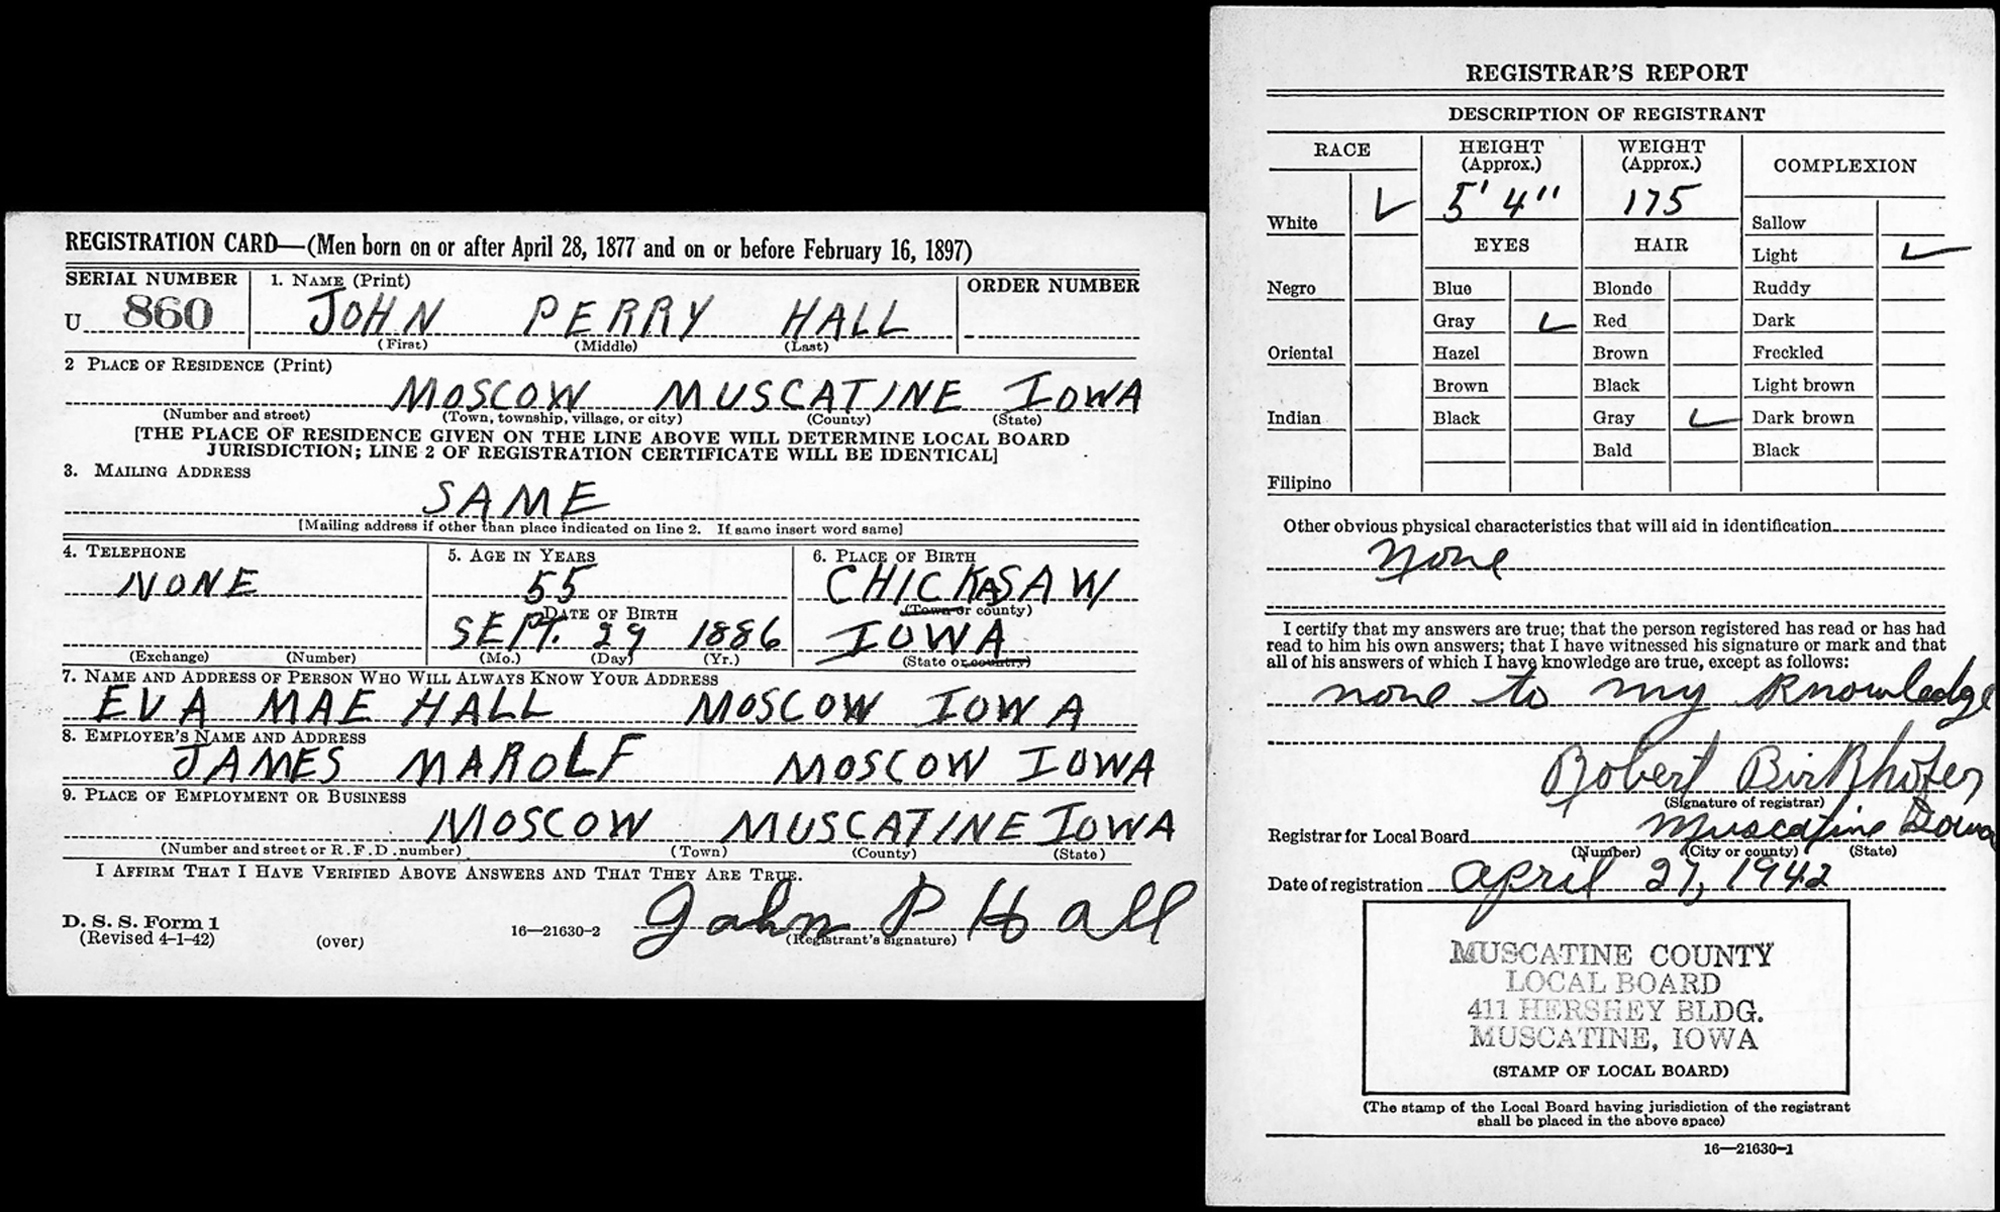 REGISTRATION CARD—(Men born on or after April 28, 1877 and on or before February 16, 1897)
SERIAL NUMBER
1. NAME (Print)
ORDER NUMBER
U 860
JOHN PERRY HALL
(First) (Middle) (Last)
2 PLACE OF RESIDENCE (Print)
MOSCOW MUSCATINE IOWA
(Number and street) (Town, township, village, or city) (County) (State)
[THE PLACE OF RESIDENCE GIVEN ON THE LINE ABOVE WILL DETERMINE LOCAL BOARD
JURISDICTION; LINE 2 OF REGISTRATION CERTIFICATE WILL BE IDENTICAL]
3. MAILING ADDRESS
SAME
[Mailing address if other than place indicated on line 2. If same insert word same]
4. TELEPHONE
NONE
(Exchange) (Number)
5. AGE IN YEARS
55
DATE OF BIRTH
SEPT. 29 1886
(Mo.) (Day) (Yr.)
6. PLACE OF BIRTH
CHICKASAW
(Town or county)
IOWA
(State or country)
7. NAME AND ADDRESS OF PERSON WHO WILL ALWAYS KNOW YOUR ADDRESS
EVA MAE HALL MOSCOW IOWA
8. EMPLOYER'S NAME AND ADDRESS
JAMES MAROLF MOSCOW IOWA
9. PLACE OF EMPLOYMENT OR BUSINESS
MOSCOW MUSCATINE IOWA
(Number and street or R.F.D. number) (Town) (County) (State)
I AFFIRM THAT I HAVE VERIFIED ABOVE ANSWERS AND THAT THEY ARE TRUE.
John P Hall
D. S. S. Form 1
(Revised 4-1-42) (over) 16—21630-2 (Registrant's signature)
REGISTRAR'S REPORT
DESCRIPTION OF REGISTRANT
RACE
White ✓
Negro
Oriental
Indian
Filipino
HEIGHT
(Approx.)
5' 4"
WEIGHT
(Approx.)
175
EYES
Blue
Gray ✓
Hazel
Brown
Black
HAIR
Blonde
Red
Brown
Black
Gray ✓
Bald
COMPLEXION
Sallow
Light ✓
Ruddy
Dark
Freckled
Light brown
Dark brown
Black
Other obvious physical characteristics that will aid in identification
none
I certify that my answers are true; that the person registered has read or has had
read to him his own answers; that I have witnessed his signature or mark and that
all of his answers of which I have knowledge are true, except as follows:
none to my knowledge
Robert Birkhofer
(Signature of registrar)
Registrar for Local Board Muscatine Iowa
(Number) (City or county) (State)
Date of registration April 27, 1942
MUSCATINE COUNTY
LOCAL BOARD
411 HERSHEY BLDG.
MUSCATINE, IOWA
(STAMP OF LOCAL BOARD)
(The stamp of the Local Board having jurisdiction of the registrant
shall be placed in the above space)
16—21630-1